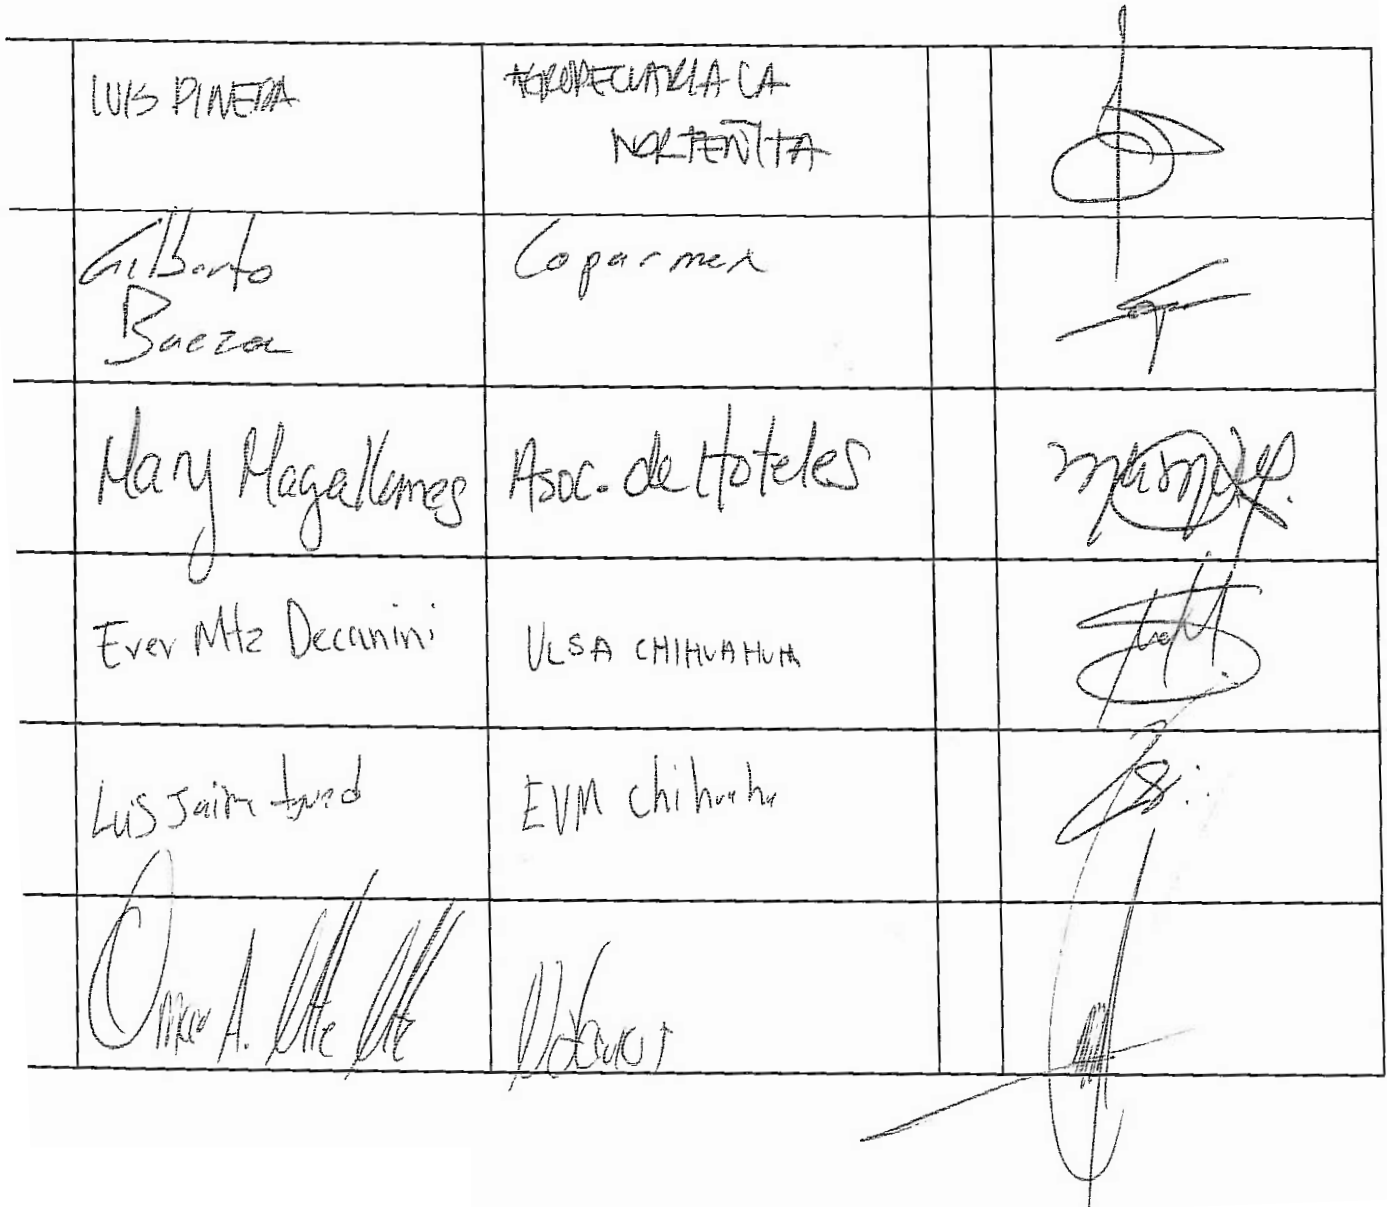 LUIS PINEDA
AGROPECUARIA LA
NORTEÑITA
Gilberto
Baeza
Coparmex
Mary Magallanes
Asoc. de Hoteles
Ever Mtz Decanini
ULSA CHIHUAHUA
Luis Jaime
EVM Chihuahu
Omar A.